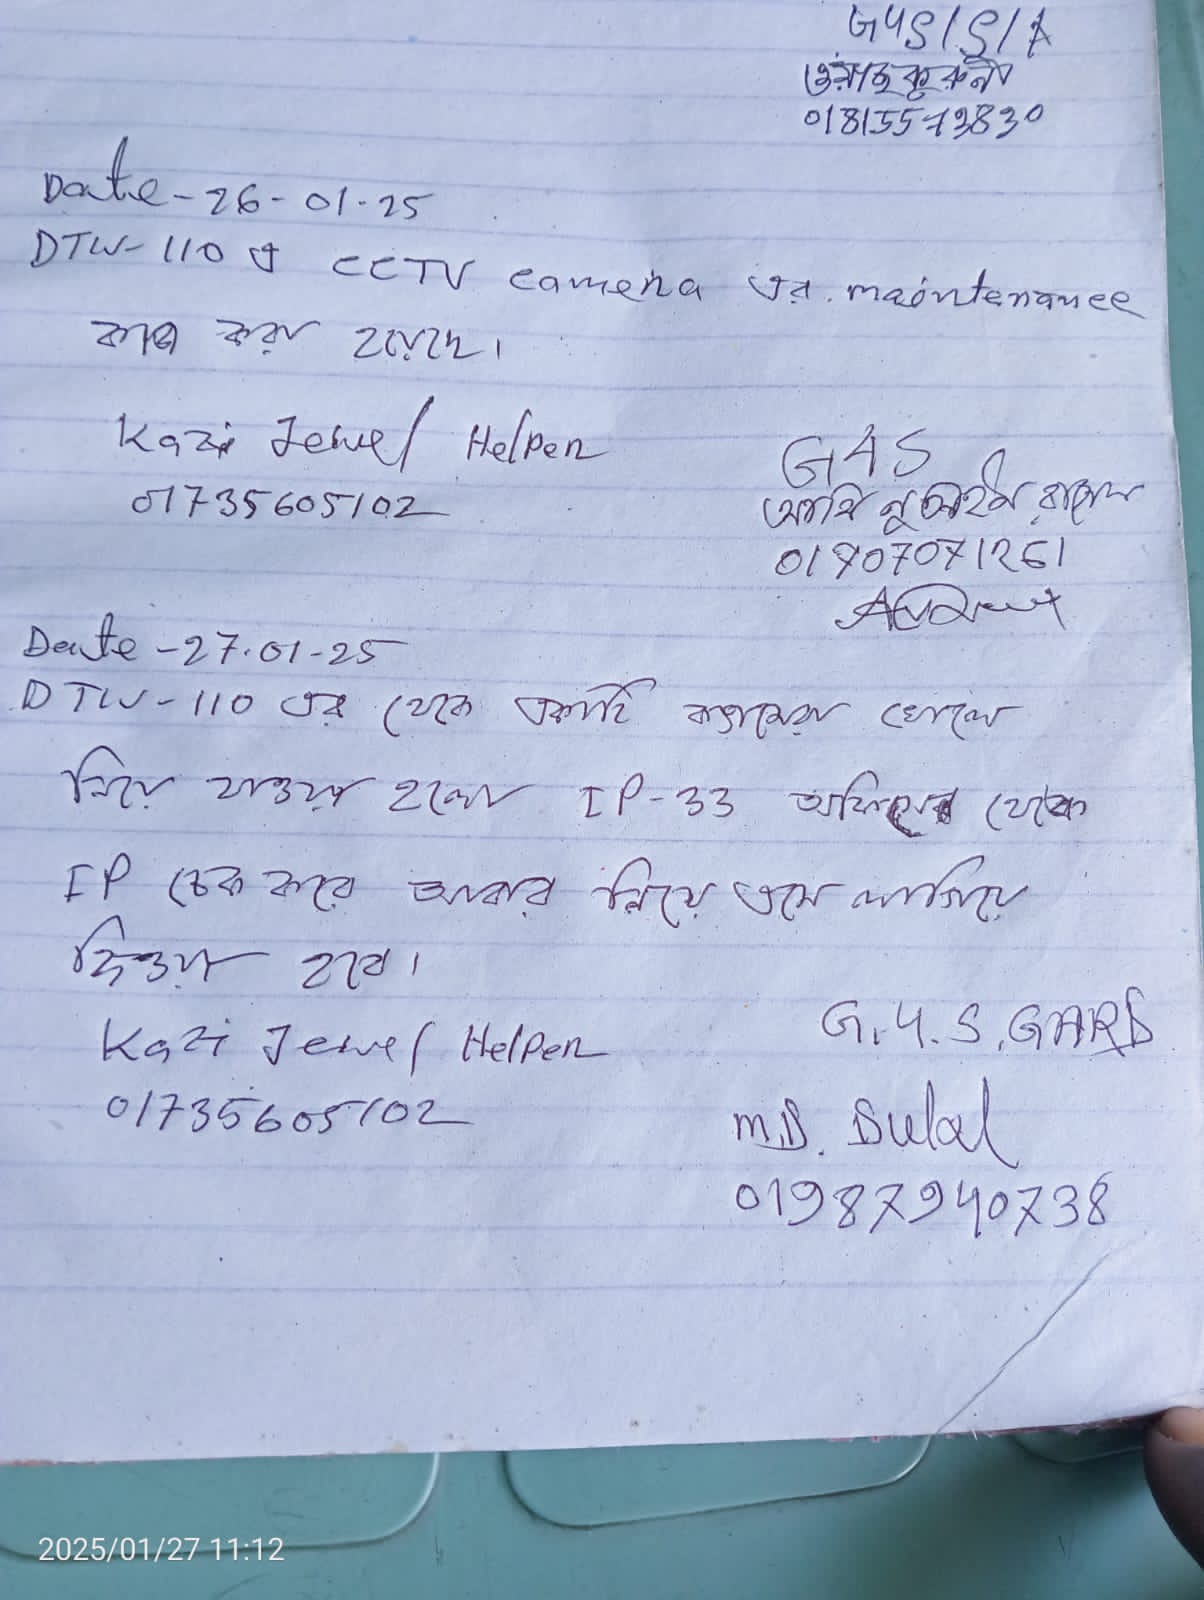 G4S/S/A
ওয়াছকুরুনী
01815573830
Date-26-01-25
DTW-110 এ CCTV camera এর maintenance
কাজ করা হয়েছে।
Kazi Jewel Helper
01735605102
G4S
আলি নুর
01907071261
Date-27.01-25
DTW-110 এর থেকে একটি ক্যামেরা খোলে
নিয়ে যাওয়া হলো IP-33 অফিসের থেকে
IP চেক করে আবার নিয়ে এসে লাগিয়ে
দিওয়া হবে।
Kazi Jewel Helper
01735605102
G.4.S. GARD
MD. Dulal
01987940738
2025/01/27 11:12